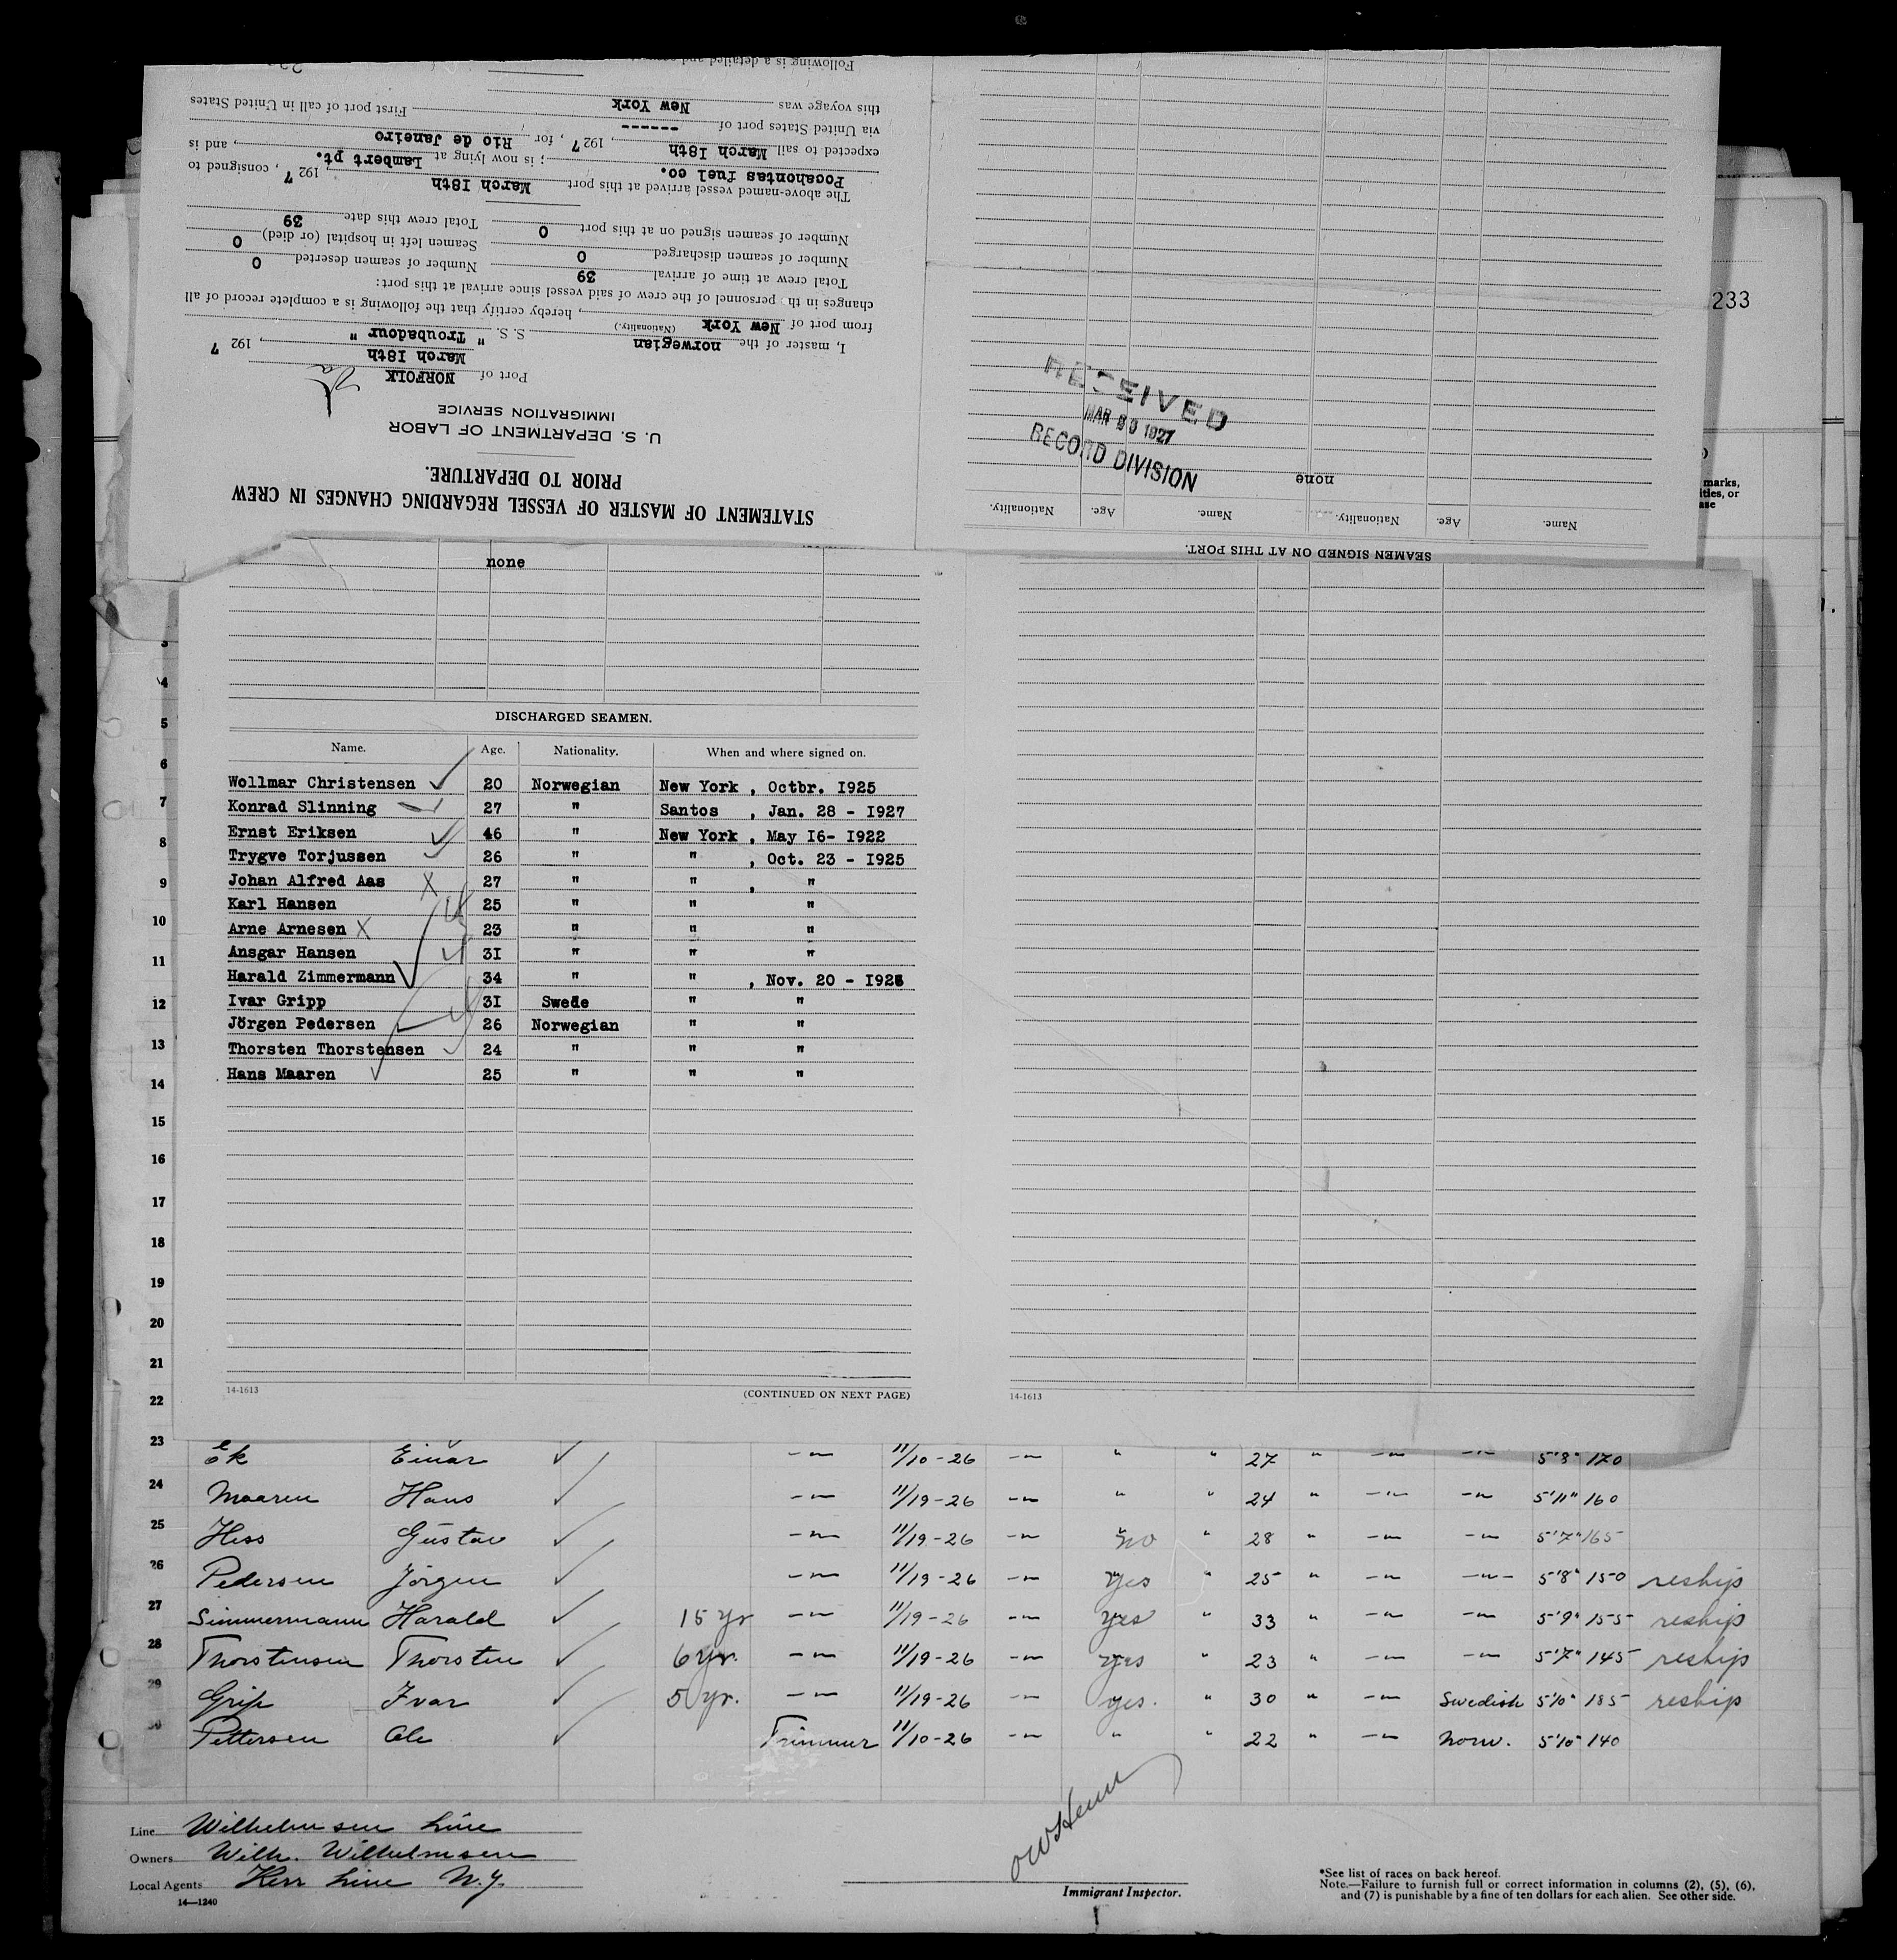 STATEMENT OF MASTER OF VESSEL REGARDING CHANGES IN CREW
PRIOR TO DEPARTURE.
U. S. DEPARTMENT OF LABOR
IMMIGRATION SERVICE
Port of NORFOLK Va
March 18th, 1927
I, master of the norwegian S. S. " Troubadour "
(Nationality.)
from port of New York, hereby certify that the following is a complete record of all
changes in the personnel of the crew of said vessel since arrival at this port:
Total crew at time of arrival 39 Number of seamen deserted 0
Number of seamen discharged 0 Seamen left in hospital (or died) 0
Number of seamen signed on at this port 0 Total crew this date 39
The above-named vessel arrived at this port March 18th 1927, consigned to
Pocahontas fuel co.; is now lying at Lambert pt., and is
expected to sail March 18th, 1927, for Rio de Janeiro
via United States port of ------
this voyage was New York First port of call in United States
Following is a detailed and
SEAMEN SIGNED ON AT THIS PORT.
Name. Age. Nationality. Name. Age. Nationality.
none
RECEIVED
MAR 1927
RECORD DIVISION
233
marks,
ities, or
ase
none
DISCHARGED SEAMEN.
Name. Age. Nationality. When and where signed on.
Wollmar Christensen 20 Norwegian New York , Octbr. I925
Konrad Slinning 27 " Santos , Jan. 28 - I927
Ernst Eriksen 46 " New York , May I6- I922
Trygve Torjussen 26 " " , Oct. 23 - I925
Johan Alfred Aas X 27 " " , "
Karl Hansen 25 " " "
Arne Arnesen X 23 " " "
Ansgar Hansen 3I " " "
Harald Zimmermann 34 " " , Nov. 20 - I926
Ivar Gripp 3I Swede " "
Jörgen Pedersen 26 Norwegian " "
Thorsten Thorstensen 24 " " "
Hans Maaren 25 " " "
14-1613 (CONTINUED ON NEXT PAGE) 14-1613
3
4
5
6
7
8
9
10
11
12
13
14
15
16
17
18
19
20
21
22
23 Ek Einar -"- 11/10-26 -"- " " 27 " -"- -"- 5'8" 170
24 Maaren Hans -"- 11/19-26 -"- " " 24 " -"- -"- 5'11" 160
25 Hess Gustav -"- 11/19-26 -"- no " 28 " -"- -"- 5'7" 165
26 Pedersen Jörgen -"- 11/19-26 -"- yes " 25 " -"- -"- 5'8" 150 reship
27 Simmermann Harald 15 yr -"- 11/19-26 -"- yes " 33 " -"- -"- 5'9" 155 reship
28 Thorstensen Thorsten 6 yr. -"- 11/19-26 -"- yes " 23 " -"- -"- 5'7" 145 reship
29 Grip Ivar 5 yr. -"- 11/19-26 -"- yes. " 30 " -"- Swedish 5'10" 185 reship
30 Pettersen Ole Trimmer 11/10-26 -"- " " 22 " -"- Norw. 5'10" 140
Line Wilhelmsen Line
Owners Wilh. Wilhelmsen
Local Agents Kerr Line N.Y.
14—1240
Immigrant Inspector.
*See list of races on back hereof.
Note.—Failure to furnish full or correct information in columns (2), (5), (6),
and (7) is punishable by a fine of ten dollars for each alien. See other side.